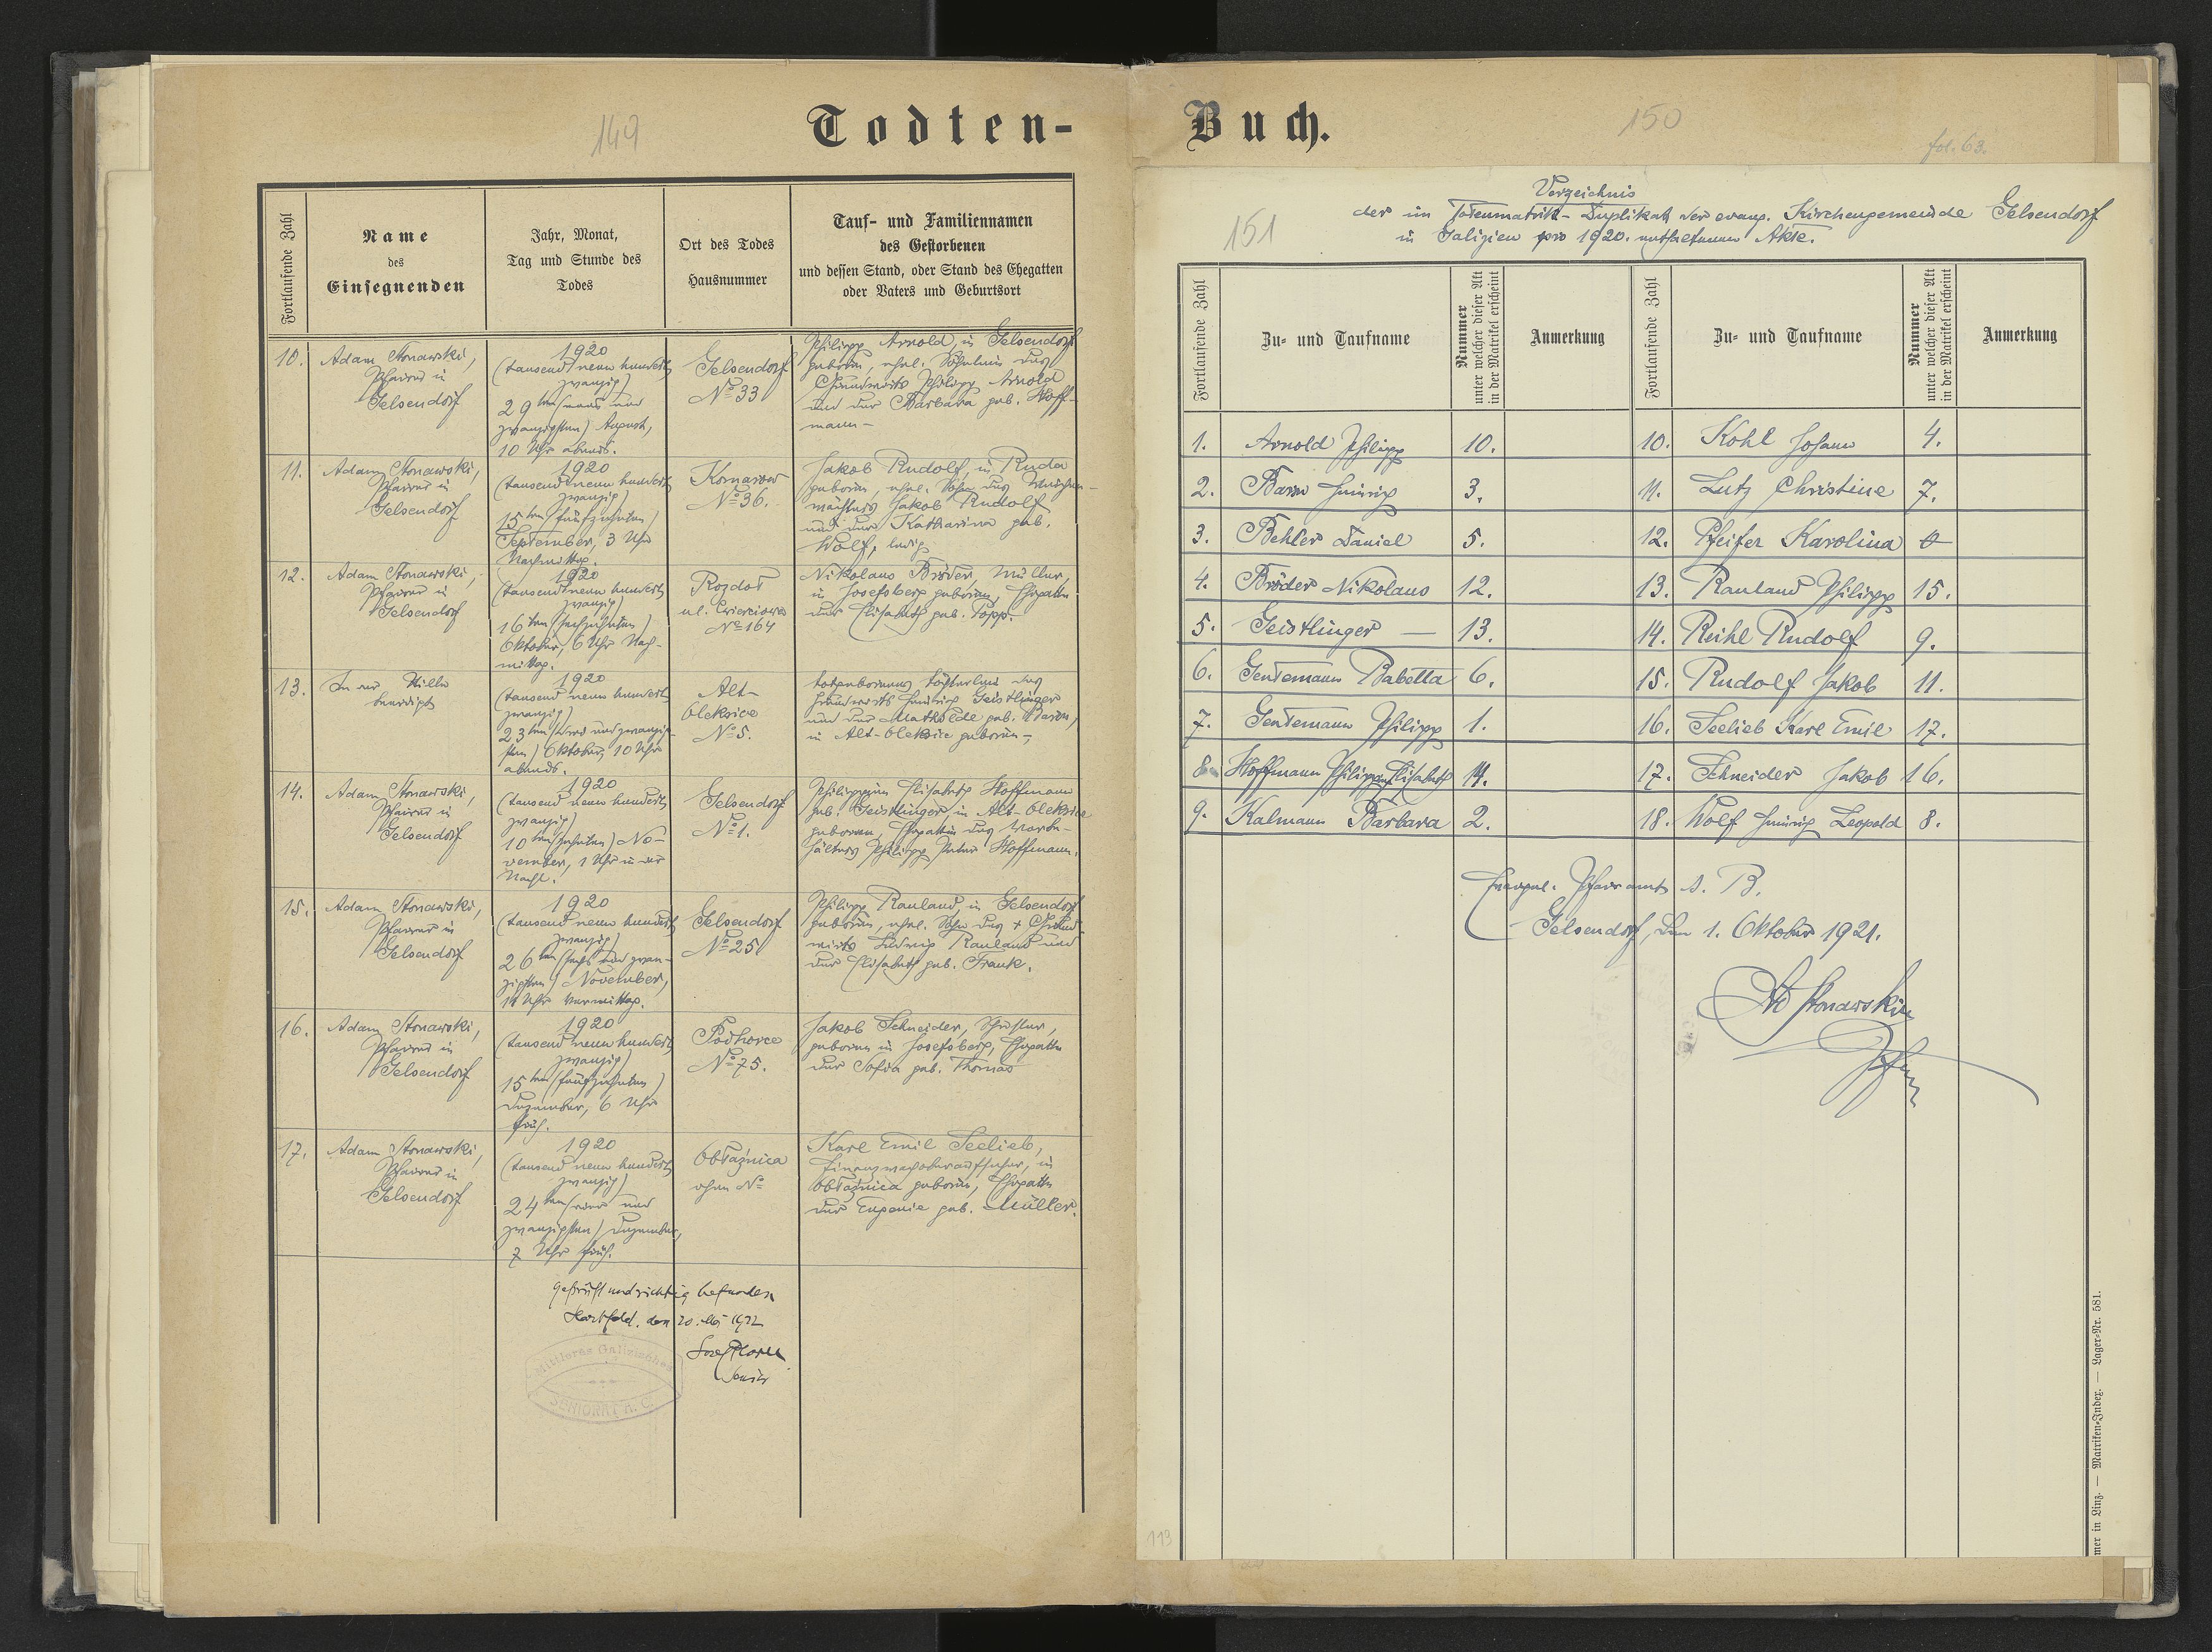 149
Todten-
Fortlaufende Zahl
Name
des
Einsegnenden
Jahr, Monat,
Tag und Stunde des
Todes
Ort des Todes
Hausnummer
Tauf- und Familiennamen
des Gestorbenen
und dessen Stand, oder Stand des Ehegatten
oder Vaters und Geburtsort
10.
Adam Stonawski,
Pfarrer in
Gelsendorf
1920
(tausend neun hundert
zwanzig)
29ten (neun und
zwanzigsten) August,
10 Uhr abends.
Gelsendorf
No 33
Philipp Arnold, in Gelsendorf
geboren, ehel. Söhnlein des
Grundwirts Philipp Arnold
und der Barbara geb. Hoff-
mann –
11.
Adam Stonawski,
Pfarrer in
Gelsendorf
1920
(tausend neun hundert
zwanzig)
15ten (fünfzehnten)
September, 3 Uhr
Nachmittag.
Komarow
No 36.
Jakob Rudolf, in Ruda
geboren, ehel. Sohn des
Jakob Rudolf
und der Katharina geb.
Wolf, ledig
12.
Adam Stonawski,
Pfarrer in
Gelsendorf
1920
(tausend neun hundert
zwanzig)
16ten (sechzehnten)
Oktober, 6 Uhr Nach-
mittag.
Rozdoł
ul.
No 164
Nikolaus Bröder, Müller,
in Josefsberg geboren, Ehegatte
der Elisabeth geb. Popp.
13.
In der Stille
beerdigt
1920
(tausend neun hundert
zwanzig)
23ten (drei und zwanzig-
sten) Oktober, 10 Uhr
abends.
Alt-
Oleksice
No 5.
totgeborenes Töchterlein des
Grundwirts Heinrich Geistlinger
und der Mathilde geb.
in Alt-Oleksice geboren –
14.
Adam Stonawski,
Pfarrer in
Gelsendorf
1920
(tausend neun hundert
zwanzig)
10ten (zehnten) No-
vember, 1 Uhr in der
Nacht.
Gelsendorf
No 1.
Philippine Elisabeth Hoffmann
geb. Geistlinger, in Alt-Oleksice
geboren, Ehegattin des
Philipp Peter Hoffmann.
15.
Adam Stonawski,
Pfarrer in
Gelsendorf
1920
(tausend neun hundert
zwanzig)
26ten (sechs und zwan-
zigsten) November,
11 Uhr Vormittag.
Gelsendorf
No 25
Philipp Rauland in Gelsendorf
geboren, ehel. Sohn des + Grund-
wirts Ludwig Rauland und
der Elisabeth geb. Frank.
16.
Adam Stonawski,
Pfarrer in
Gelsendorf
1920
(tausend neun hundert
zwanzig)
15ten (fünfzehnten)
Dezember, 6 Uhr
früh.
Podhorce
No 75.
Jakob Schneider, Schuster,
geboren in Josefsberg, Ehegatte
der Sofia geb. Thomas
17.
Adam Stonawski,
Pfarrer in
Gelsendorf
1920
(tausend neun hundert
zwanzig)
24ten (vier und
zwanzigsten) Dezember,
7 Uhr früh.
Obłaźnica
ohne No
Karl Emil Seelieb,
Finanzwachoberaufseher, in
Obłaźnica geboren, Ehegatte
der Eugenie geb. Müller.
geprüft und richtig befunden
Hartfeld, den 20. Mai 1922
Senior
Mittleres Galizisches
SENIORAT A. C.
Buch.
150
fol. 63.
151
Verzeichnis
der im Totenmatrik-Duplikat der evang. Kirchengemeinde Gelsendorf
in Galizien pro 1920. enthaltenen Akte.
Fortlaufende Zahl
Zu- und Taufname
Nummer
unter welcher dieser Akt
in der Matrikel erscheint
Anmerkung
Fortlaufende Zahl
Zu- und Taufname
Nummer
unter welcher dieser Akt
in der Matrikel erscheint
Anmerkung
1. Arnold Philipp 10.
2. Heinrich 3.
3. Behler Daniel 5.
4. Bröder Nikolaus 12.
5. Geistlinger — 13.
6. Gentemann Babetta 6.
7. Gentemann Philipp 1.
8. Hoffmann Philippine Elisabeth 14.
9. Kalmann Barbara 2.
10. Kohl Johann 4.
11. Lutz Christine 7.
12. Pfeifer Karolina
13. Rauland Philipp 15.
14. Reihl Rudolf 9.
15. Rudolf Jakob 11.
16. Seelieb Karl Emil 17.
17. Schneider Jakob 16.
18. Wolf Heinrich Leopold 8.
Evangel. Pfarramt A. B.
Gelsendorf, den 1. Oktober 1921.
Ad Stonawski
Pfarrer
113
mer in Linz. — Matriken-Index. — Lager-Nr. 581.